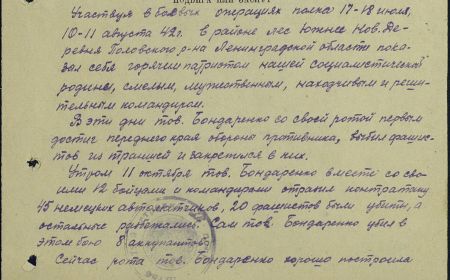 Участвуя в боевых операциях полка 17-18 июля,
10-11 августа 42г. в районе лес Южнее Нов. Де-
ревня Полавского р-на Ленинградской области пока-
зал себя горячим патриотом нашей социалистической
родины, смелым, мужественным, находчивым и реши-
тельным командиром.
В эти дни тов. Бондаренко со своей ротой первым
достиг переднего края обороны противника, выбил фашис-
тов из траншей и закрепился в них.
Утром 11 октября тов. Бондаренко вместе со сво-
ими 12 бойцами и командирами отразил контратаку
45 немецких автоматчиков, 20 фашистов были убиты, а
остальные разбежались. Сам тов. Бондаренко убил в
этом бою 8 оккупантов.
Сейчас рота тов. Бондаренко хорошо построила